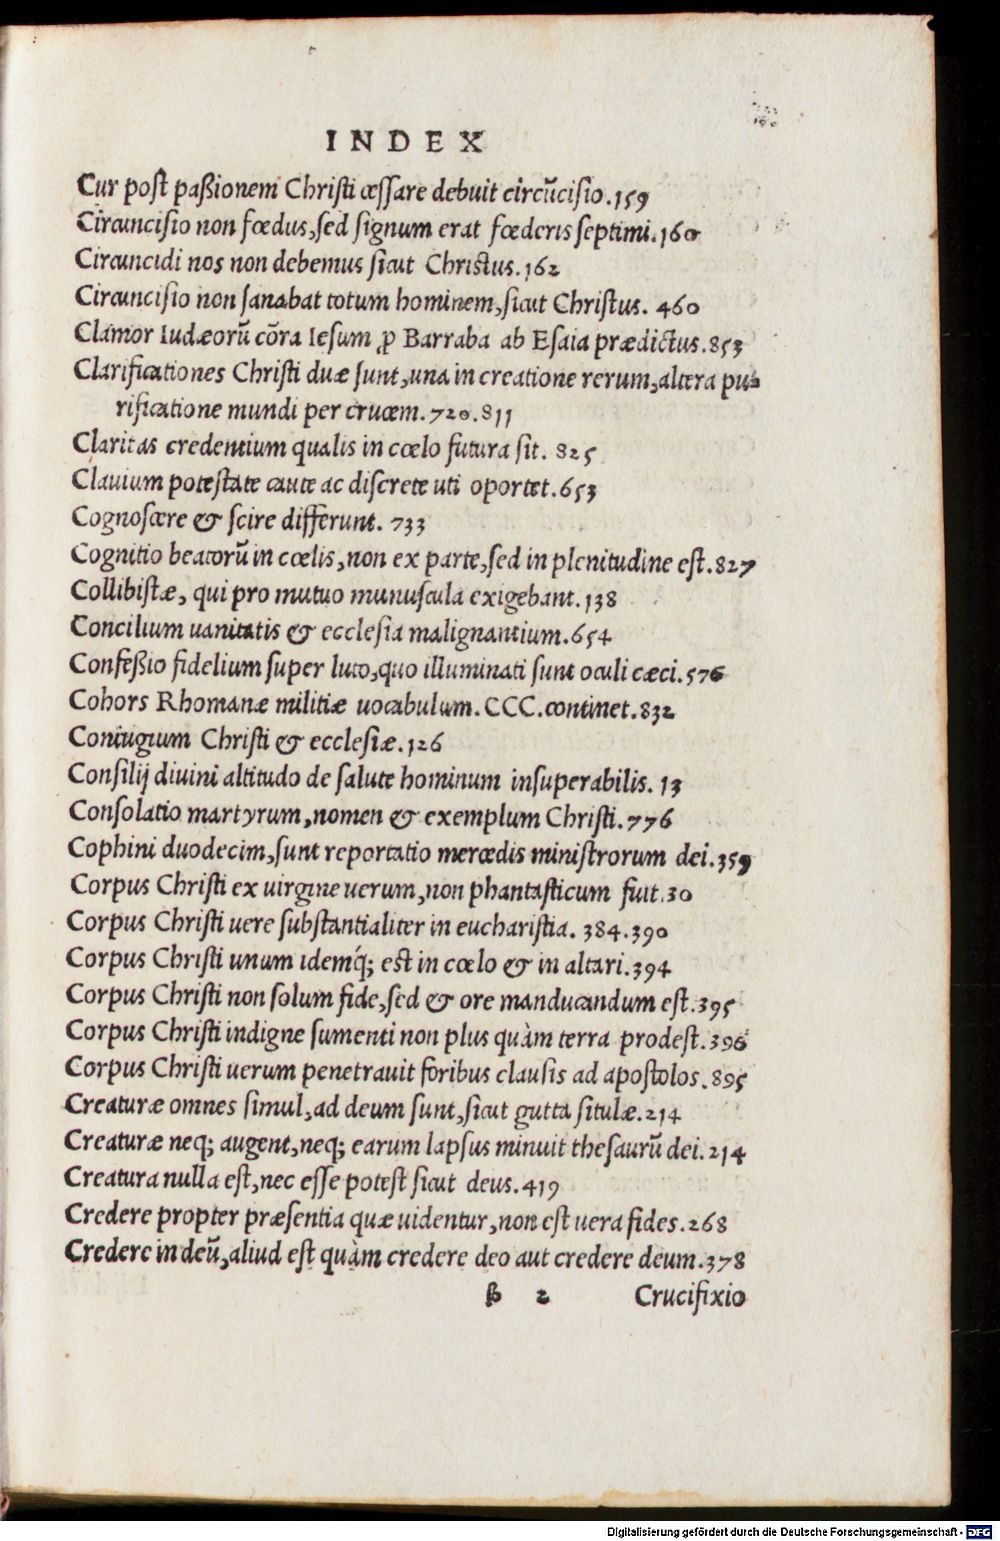 INDEX
Cur post paßionem Christi cessare debuit circũcisio.159
Circuncisio non fœdus,sed signum erat fœderis septimi.160
Circuncidi nos non debemus sicut Christus.162
Circuncisio non sanabat totum hominem,sicut Christus. 460
Clamor Iudæorũ cõra Iesum ꝓ Barraba ab Esaia prædictus.853
Clarificationes Christi duæ sunt,una in creatione rerum,altera pu-
rificatione mundi per crucem.720.811
Claritas credentium qualis in cœlo futura sit. 825
Clauium potestate caute ac discrete uti oportet.653
Cognoscere & scire differunt. 733
Cognitio beatorũ in cœlis,non ex parte,sed in plenitudine est.827
Collibistæ, qui pro mutuo munuscula exigebant.138
Concilium uanitatis & ecclesia malignantium.654
Confeßio fidelium super luto,quo illuminati sunt oculi cæci.576
Cohors Rhomanæ militiæ uocabulum.CCC.continet.832
Coniugium Christi & ecclesiæ.126
Consilij diuini altitudo de salute hominum insuperabilis. 13
Consolatio martyrum,nomen & exemplum Christi.776
Cophini duodecim,sunt reportatio mercedis ministrorum dei.359
Corpus Christi ex uirgine uerum,non phantasticum fuit.30
Corpus Christi uere substantialiter in eucharistia. 384.390
Corpus Christi unum idemq́; est in cœlo & in altari.394
Corpus Christi non solum fide,sed & ore manducandum est.395
Corpus Christi indigne sumenti non plus quàm terra prodest.396
Corpus Christi uerum penetrauit foribus clausis ad apostolos.895
Creaturæ omnes simul,ad deum sunt,sicut gutta situlæ.214
Creaturæ neq; augent,neq; earum lapsus minuit thesaurũ dei.214
Creatura nulla est,nec esse potest sicut deus.419
Credere propter præsentia quæ uidentur,non est uera fides.268
Credere in deũ,aliud est quàm credere deo aut credere deum.378
ß 2 Crucifixio
Digitalisierung gefördert durch die Deutsche Forschungsgemeinschaft - DFG